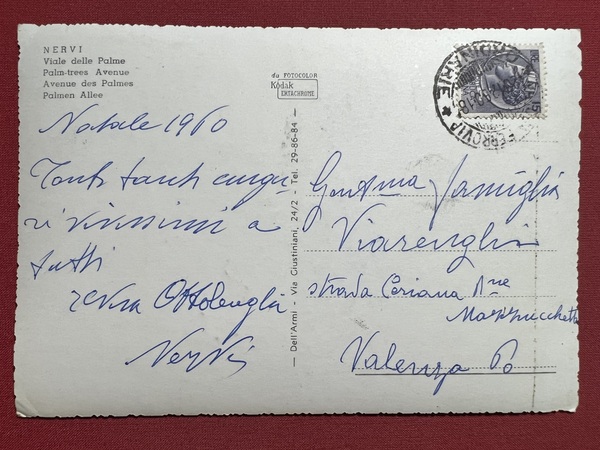 NERVI
Viale delle Palme
Palm-trees Avenue
Avenue des Palmes
Palmen Allee
da FOTOCOLOR
Kodak
EKTACHROME
Natale 1960
Tanti tanti augu
ri vivissimi a
tutti
Ottolenghi
Nervi
— Dell'Armi - Via Giustiniani, 24/2 - Tel. 29-86-84 —
Gent.ma famiglia
strada
Valenza Po
FERROVIA